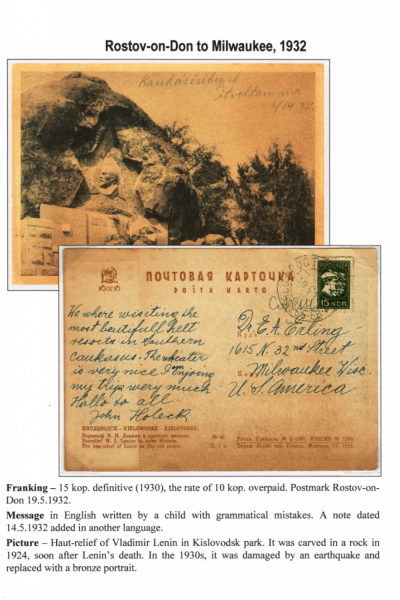 Rostov-on-Don to Milwaukee, 1932
Kaukasischegeb
5/14 32
ПОЧТОВАЯ КАРТОЧКА
POŜTA KARTO
15 КОП.
We where wisiting the
most beautifull helt
resorts in Southern
Caukasus. The wheater
is very nice I'm injoing
my tryp wery much
Hallo to all.
John Holeck
Dr. E. A. Erling
1615 N. 32nd Street
Milwaukee Wisc.
U. S. America
КИСЛОВОДСК – KISLOWODSK – KISLOWODSK.
Барельеф В. И. Ленина в красных камнях.
Basrelief W. I. Lenins in roten Steinen.
The bas-relief of Lenin on the red stones.
Franking – 15 kop. definitive (1930), the rate of 10 kop. overpaid. Postmark Rostov-on-
Don 19.5.1932.
Message in English written by a child with grammatical mistakes. A note dated
14.5.1932 added in another language.
Picture – Haut-relief of Vladimir Lenin in Kislovodsk park. It was carved in a rock in
1924, soon after Lenin's death. In the 1930s, it was damaged by an earthquake and
replaced with a bronze portrait.